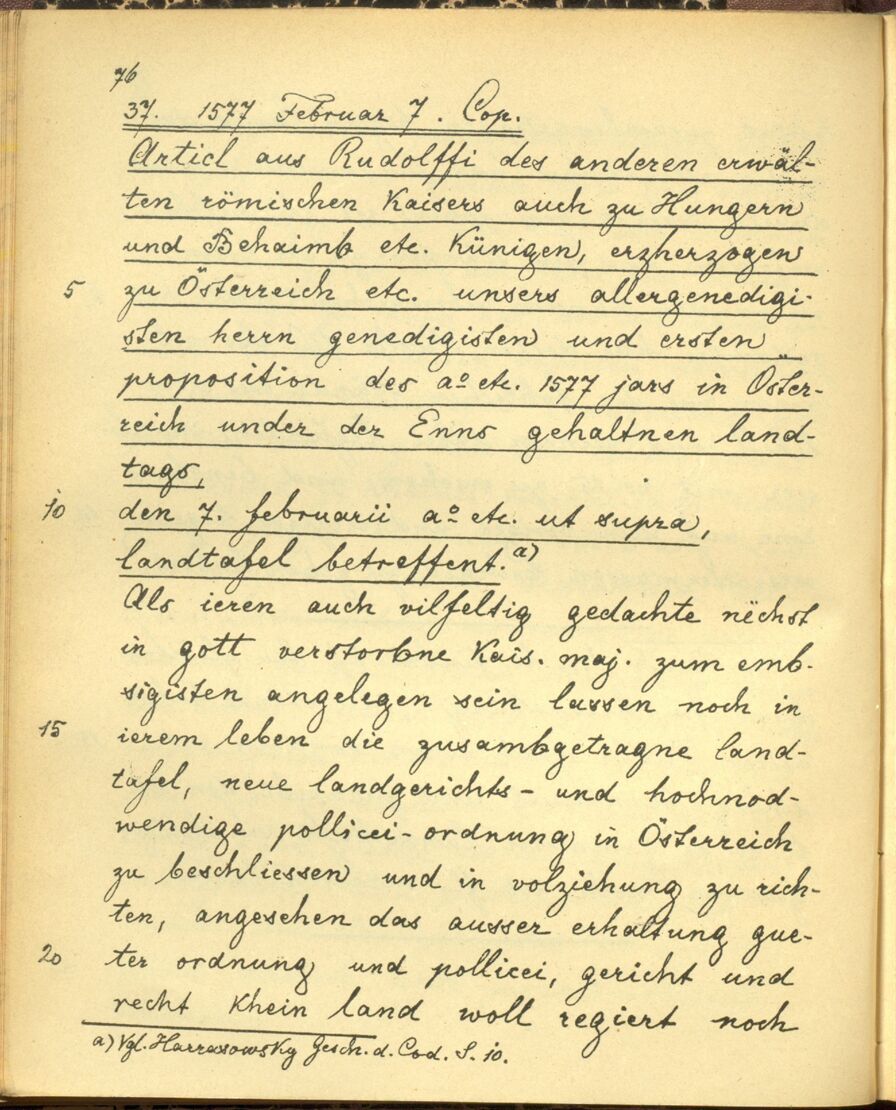 76
37. 1577 Februar 7. Cop.
Articl aus Rudolffi des anderen erwäl-
ten römischen Kaisers auch zu Hungern
und Behaimb etc. Künigen, erzherzogen
5 zu Österreich etc. unsers allergenedigi-
sten herrn genedigisten und ersten
proposition des aº etc. 1577 jars in Öster-
reich under der Enns gehaltnen land-
tags,
10 den 7. februarii aº etc. ut supra,
landtafel betreffent. a)
Als ieren auch vilfeltig gedachte nëchst
in gott verstorbne Kais. maj. zum emb-
sigisten angelegen sein lassen noch in
15 ierem leben die zusambgetragne land-
tafel, neue landgerichts- und hochnod-
wendige pollicei-ordnung in Österreich
zu beschliessen und in volziehung zu rich-
ten, angesehen das ausser erhaltung gue-
20 ter ordnung und pollicei, gericht und
recht khein land woll regiert noch
a) Vgl. Harrasowsky Gesch. d. Cod. S. 10.